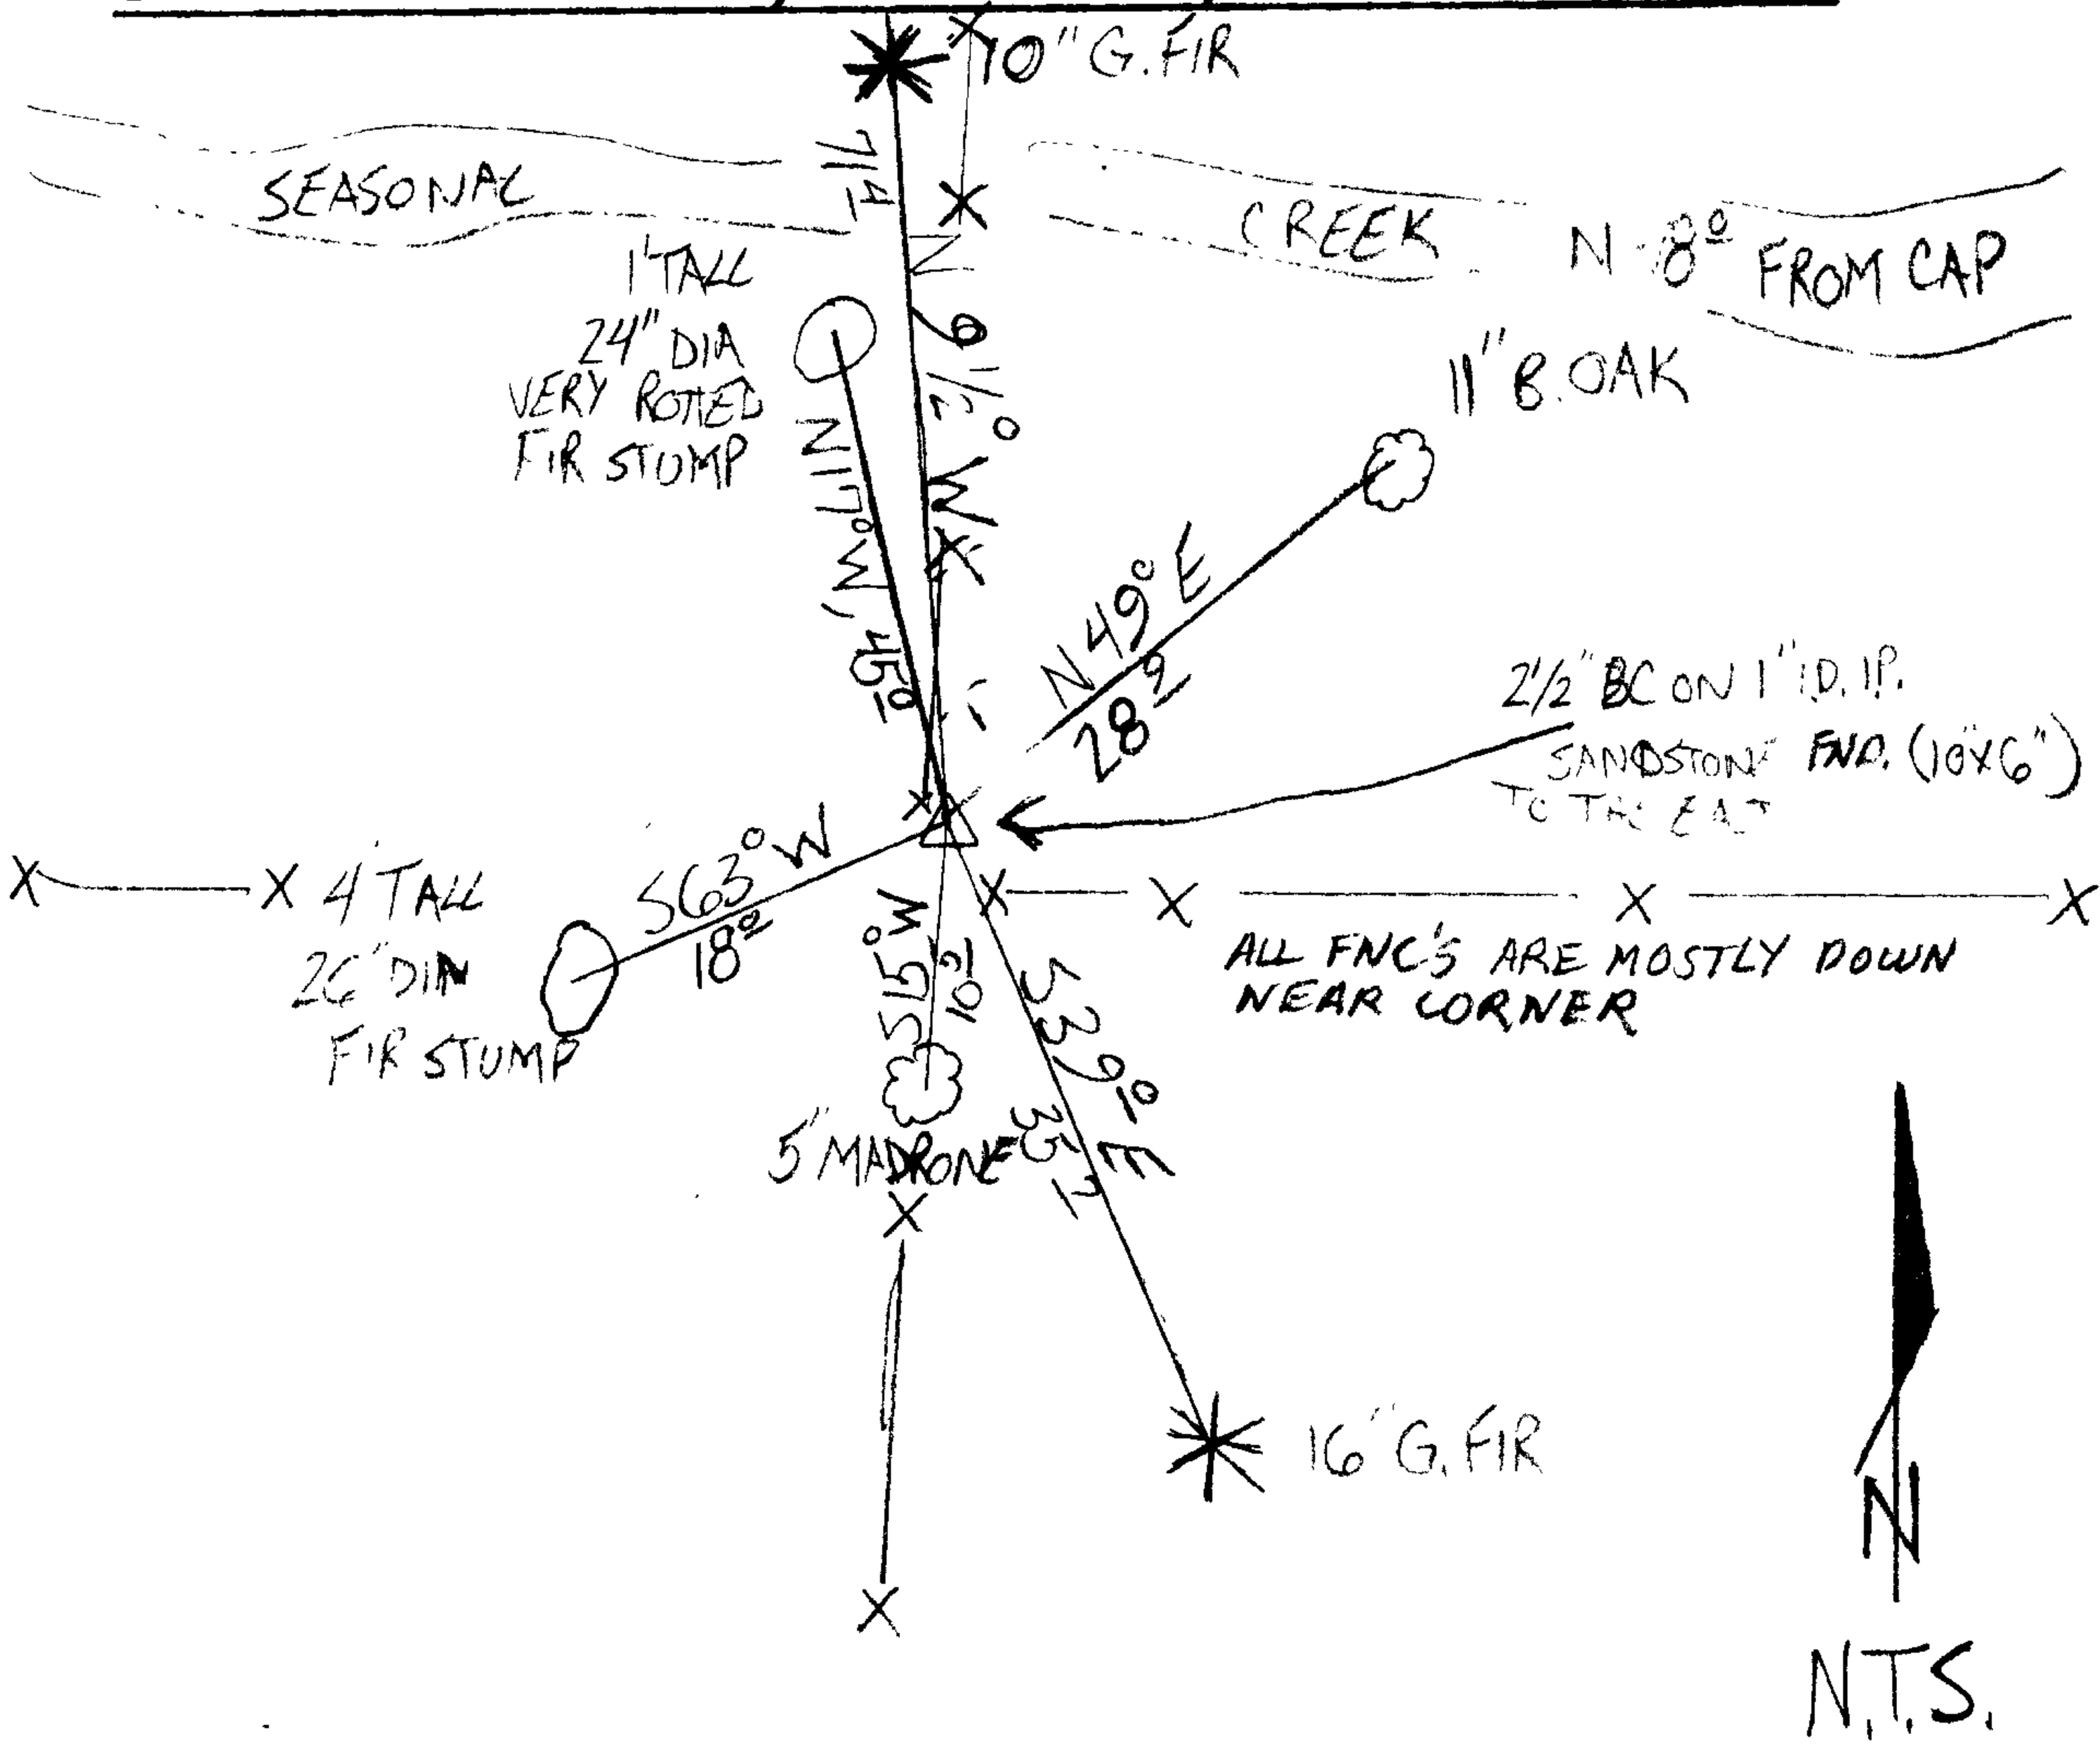 10" G. FIR
SEASONAL
CREEK
N 8º FROM CAP
71 4
N 6 1/2° W
1' TALL
24" DIA
VERY ROTTED
FIR STUMP
N17°W, 45º
11" B. OAK
N 49° E
28 9
2 1/2" BC ON 1" I.D. I.P.
SANDSTONE FND. (10"X6")
TO THE EAST
4' TALL
26" DIA
FIR STUMP
S63°W
18º
S15°W
10 2
5" MADRONE
S 36º E
35
ALL FNC'S ARE MOSTLY DOWN
NEAR CORNER
16" G. FIR
N
N.T.S.